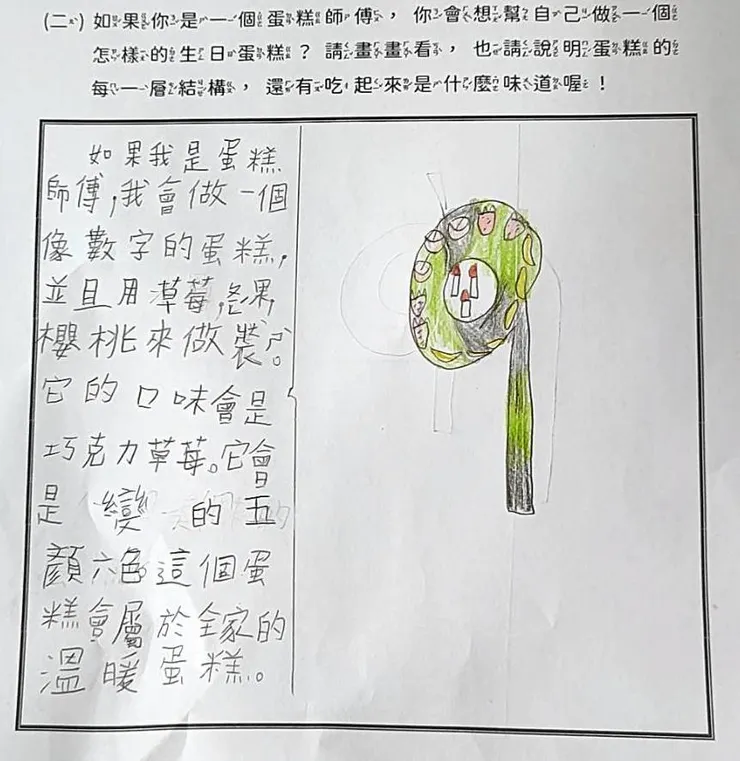 (二) 如果你是一個蛋糕師傅，你會想幫自己做一個
怎樣的生日蛋糕？請畫畫看，也請說明蛋糕的
每一層結構，還有吃起來是什麼味道喔！
如果我是蛋糕
師傅,我會做一個
像數字的蛋糕,
並且用草莓,果,
櫻桃來做裝ㄕˋ。
它的口味會是
巧克力草莓。它會
是變的五
顏六色這個蛋
糕會屬於全家的
溫暖蛋糕。